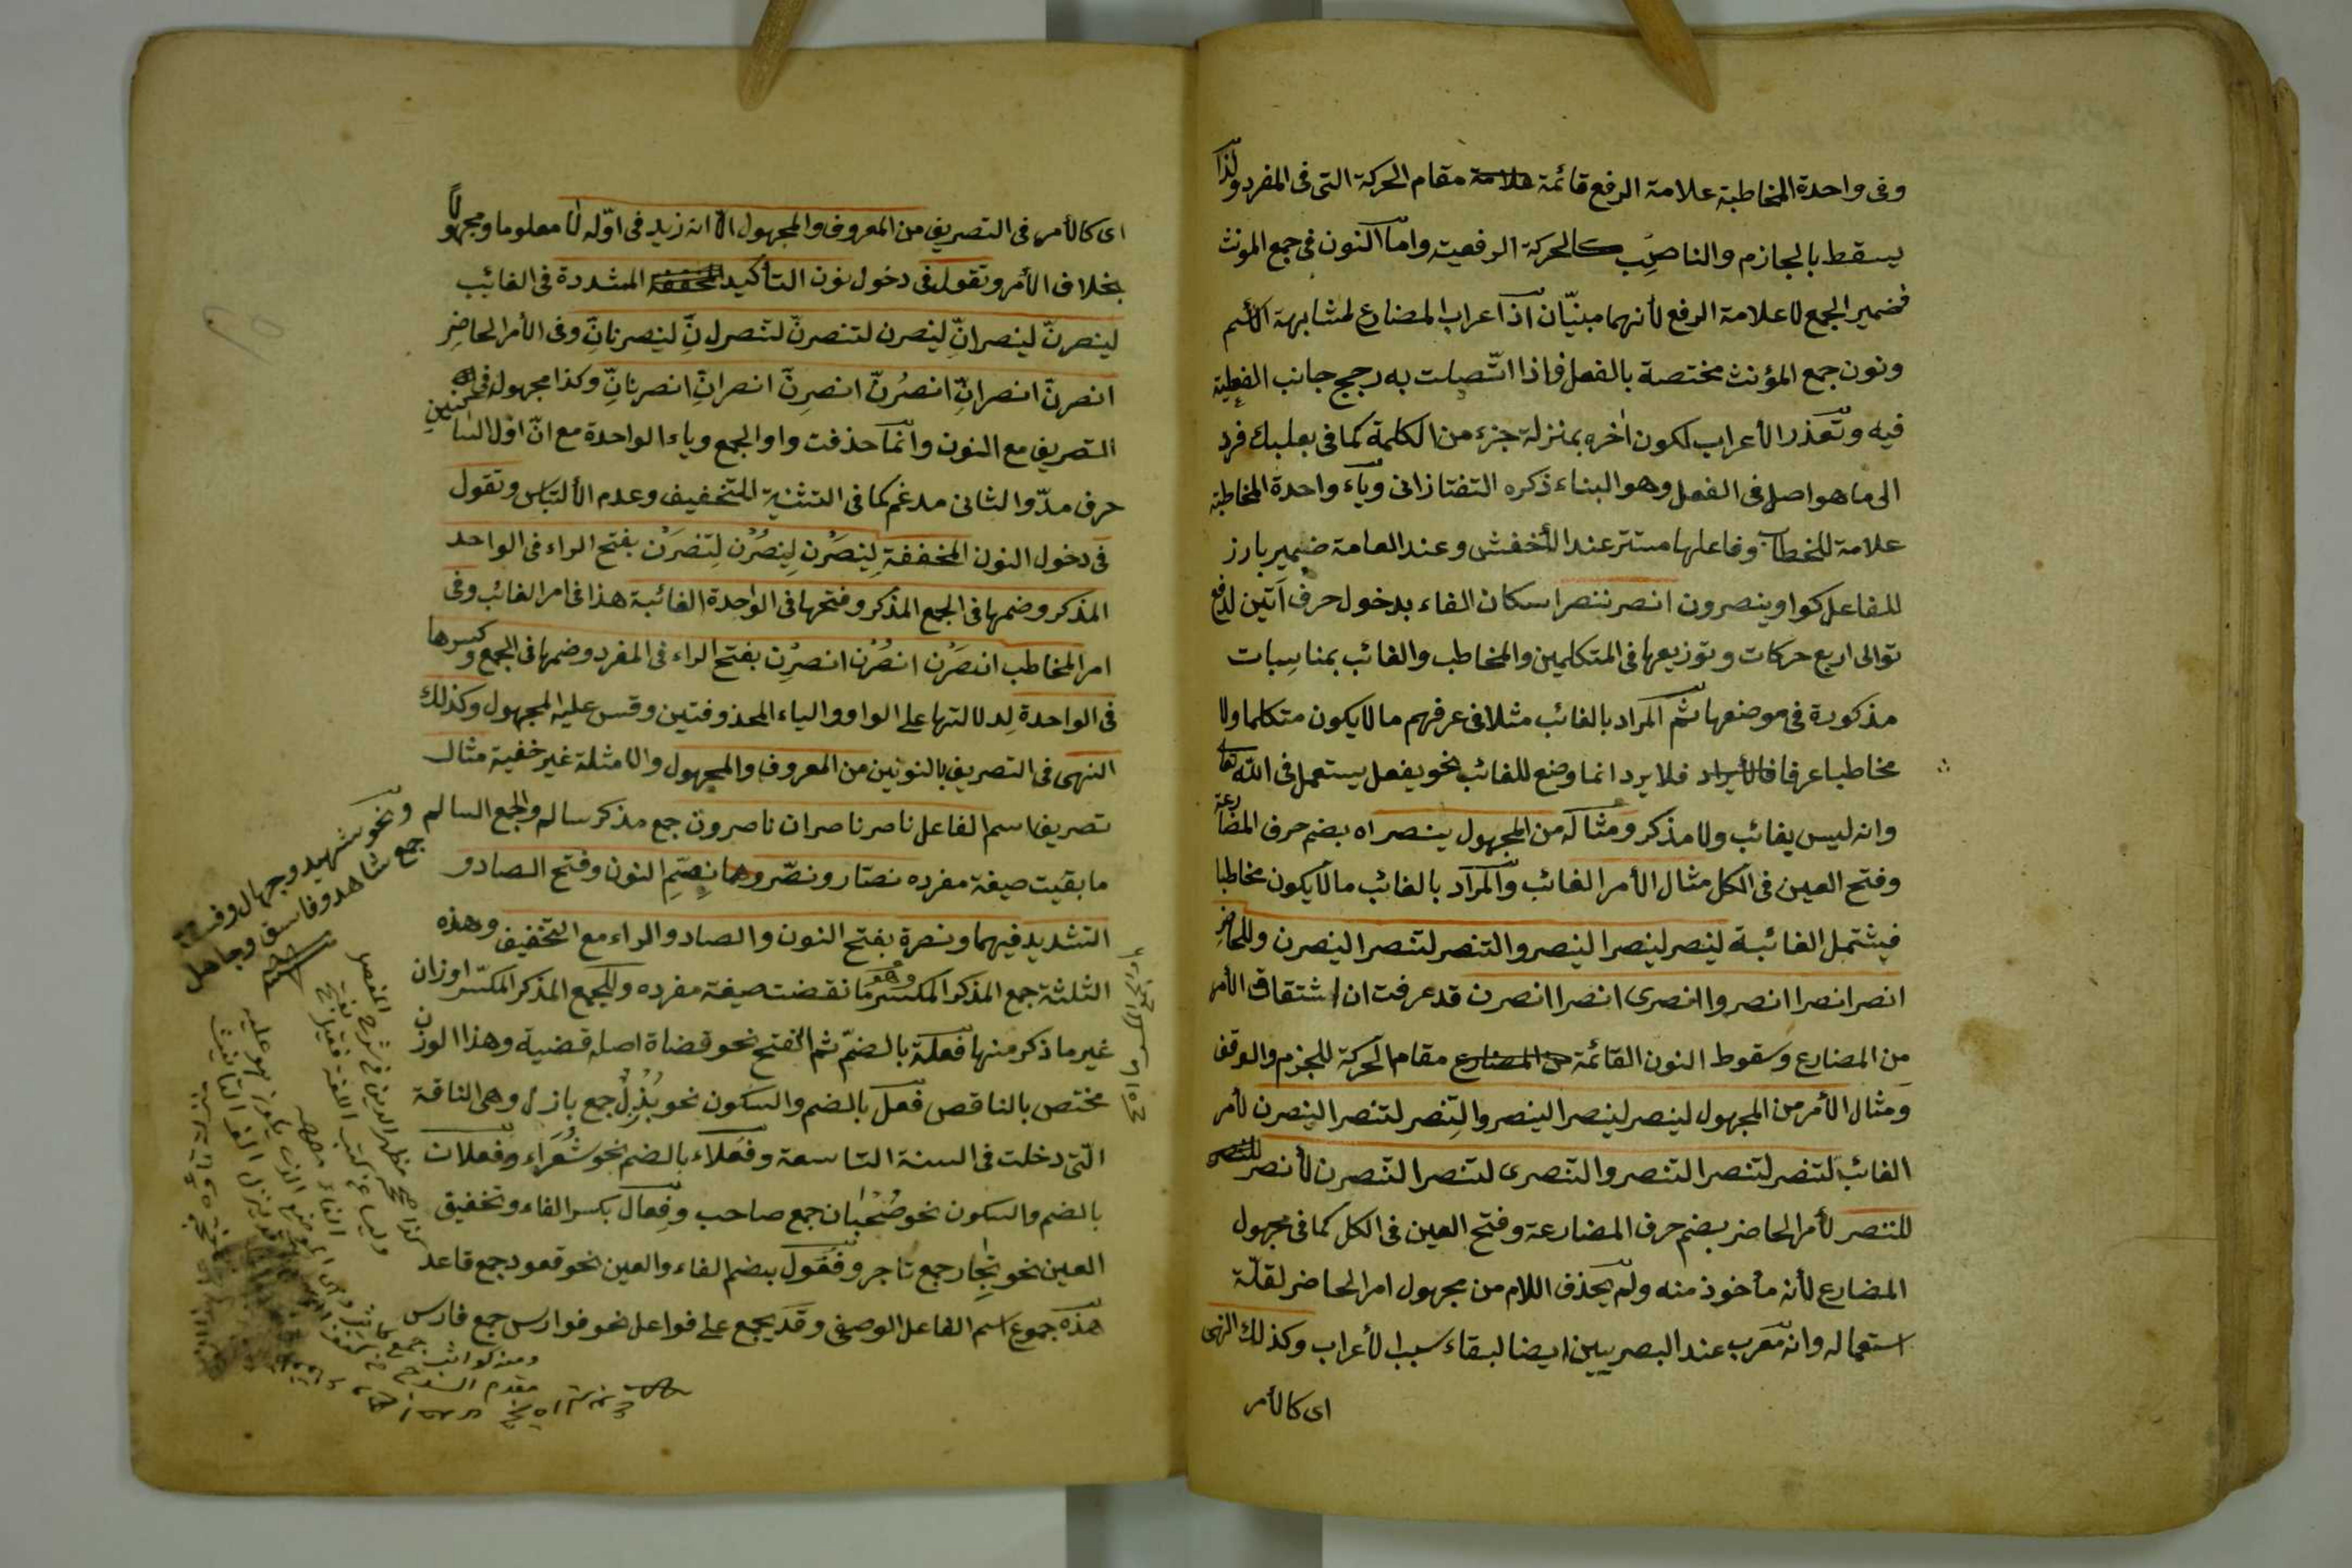 وفى واحدة المخاطبة علامة الرفع قائمة علامة مقام الحركة التى فى المفرد ولذا
يسقط بالجازم والناصب كالحركة الرفعية واما النون فى جمع المونث
فضمير الجمع لا علامة الرفع لأنهما مبنيّان اذ اعراب المضارع لمشابهة الأسم
ونون جمع المؤنث مختصة بالفعل فاذا اتّصلت به رجح جانب الفعلية
فيه وتعذر الأعراب لكون اٰخره بمنزلة جزء من الكلمة كما فى بعلبك فرد
الى ما هو اصل فى الفعل وهو البناء ذكره التفتازانى وياء واحدة المخاطبة
علامة للخطاب وفاعلها مستتر عند الأخفش وعند العامة ضمير بارز
للفاعل كواو ينصرون انصر ننصر اسكان الفاء بدخول حرف اتين لدفع
توالى اربع حركات وتوزيعها فى المتكلمين والمخاطب والغائب بمناسبات
مذكورة فى موضعها ثم المراد بالغائب مثلا فى عرفهم ما لا يكون متكلما ولا
مخاطبا عرفا فالأيراد فلا يرد انما وضع للغائب نحو يفعل يستعمل فى الله تعا
وانه ليس بغائب ولا مذكر ومثاله من المجهول ينصر اه بضم حرف المضارعة
وفتح العين فى الكل مثال الأمر الغائب والمراد بالغائب ما لا يكون مخاطبا
فيشتمل الغائبة لينصر لينصرا لينصروا لتنصر لتنصرا لينصرن وللحاضر
انصر انصرا انصروا انصرى انصرا انصرن قد عرفت ان اشتقاق الأمر
من المضارع وسقوط النون القائمة من المضارع مقام الحركة للجزم والوقف
ومثال الأمر من المجهول لينصر لينصرا لينصروا لتنصر لتنصرا لينصرن لأمر
الغائب لتنصر لتنصرا لتنصروا لتنصرى لتنصرا لتنصرن لأنصر للنصر
للننصر لأمر الحاضر بضم حرف المضارعة وفتح العين فى الكل كما فى مجهول
المضارع لأنه مأخوذ منه ولم يحذف اللام من مجهول امر الحاضر لقلّة
استعماله وانه معرب عند البصريين ايضا لبقاء سبب الأعراب وكذلك النهى
اى كالأمر
اى كالأمر فى التصريف من المعروف والمجهول الّا انه زيد فى اوّله لا معلوما ومجهولا
بخلاف الأمر وتقول فى دخول نون التأكيد المخففة المشددة فى الغائب
لينصرنّ لينصرانّ لينصرن لتنصرنّ لتنصرانِّ لينصرنانِّ وفى الأمر الحاضر
انصرنّ انصرانِّ انصرُنّ انصرِنّ انصرانِّ انصرنانِّ وكذا مجهوله فى
التصريف مع النون وانما حذفت واو الجمع وياء الواحدة مع انّ اوّل الساكنين
حرف مدّ والثانى مدغم كما فى التثنية للتخفيف وعدم الألتباس وتقول
فى دخول النون المخففة لِينصرَن لِينصرُن لِتنصرَن بفتح الراء فى الواحد
المذكر وضمها فى الجمع المذكر وفتحها فى الواحدة الغائبة هذا فى امر الغائب وفى
امر المخاطب انصرَن انصرُن انصرِن بفتح الراء فى المفرد وضمها فى الجمع وكسرها
فى الواحدة لدلالتها على الواو والياء المحذوفتين وقس عليه المجهول وكذلك
النهى فى التصريف بالنونين من المعروف والمجهول والامثلة غير خفية مثال
تصريف اسم الفاعل ناصر ناصران ناصرون جمع مذكر سالم والجمع السالم
ما بقيت صيغة مفرده نصّار ونصّر وهما بضم النون وفتح الصاد و
التشديد فيهما ونصرة بفتح النون والصاد والراء مع التخفيف وهذه
الثلثة جمع المذكر المكسر وهو ما نقضت صيغة مفرده وللجمع المذكر المكسّر اوزان
غير ما ذكر منها فعلة بالضمّ ثم الفتح نحو قضاة اصله قضية وهذا الوزن
مختص بالناقص فعل بالضم والسكون نحو بُزْلٌ جمع بازل وهى الناقة
الّتى دخلت فى السنة التاسعة وفعلاء بالضم نحو شُعَرَاء وفعلان
بالضم والسكون نحو صُحْبان جمع صاحب وفِعال بكسر الفاء وتخفيف
العين نحو تِجار جمع تاجر وفعول بضم الفاء والعين نحو قعود جمع قاعد
هذه جموع اسم الفاعل الوصفى وقد يجمع على فواعل نحو فوارس جمع فارس
ونحو شهيد وجهال وفسقة
جمع شاهد وفاسق وجاهل